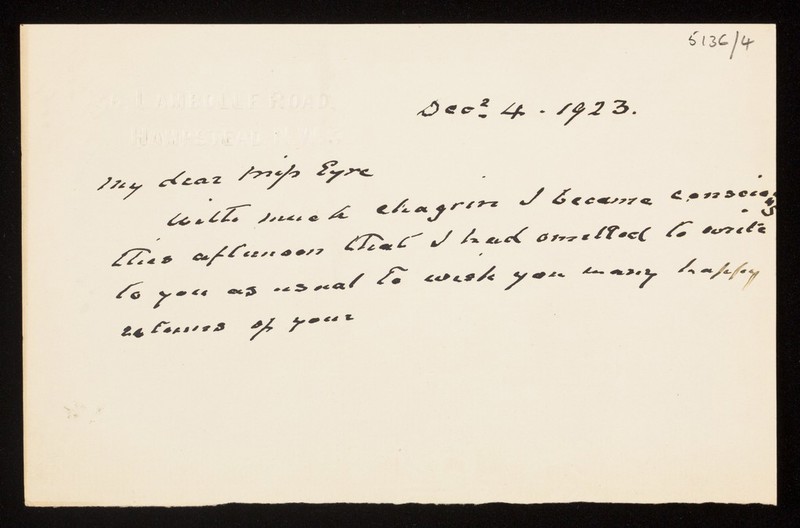 5136/4
ROAD
Decr 4 . 1923.
My dear Miss Eyre
With much chagrin I became conscious
this afternoon that I had omitted to write
to you as usual to wish you many happy
returns of your